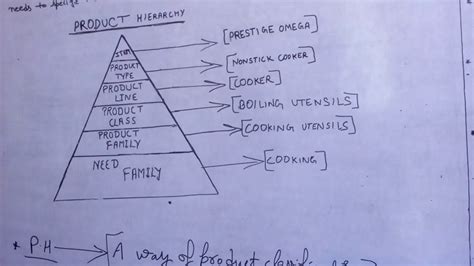 needs to
PRODUCT HIERARCHY
ITEM
[PRESTIGE OMEGA]
PRODUCT
TYPE
[NONSTICK COOKER]
PRODUCT
LINE
[COOKER]
PRODUCT
CLASS
[BOILING UTENSILS]
PRODUCT
FAMILY
[COOKING UTENSILS]
NEED
FAMILY
[COOKING]
* PH → [A way of product